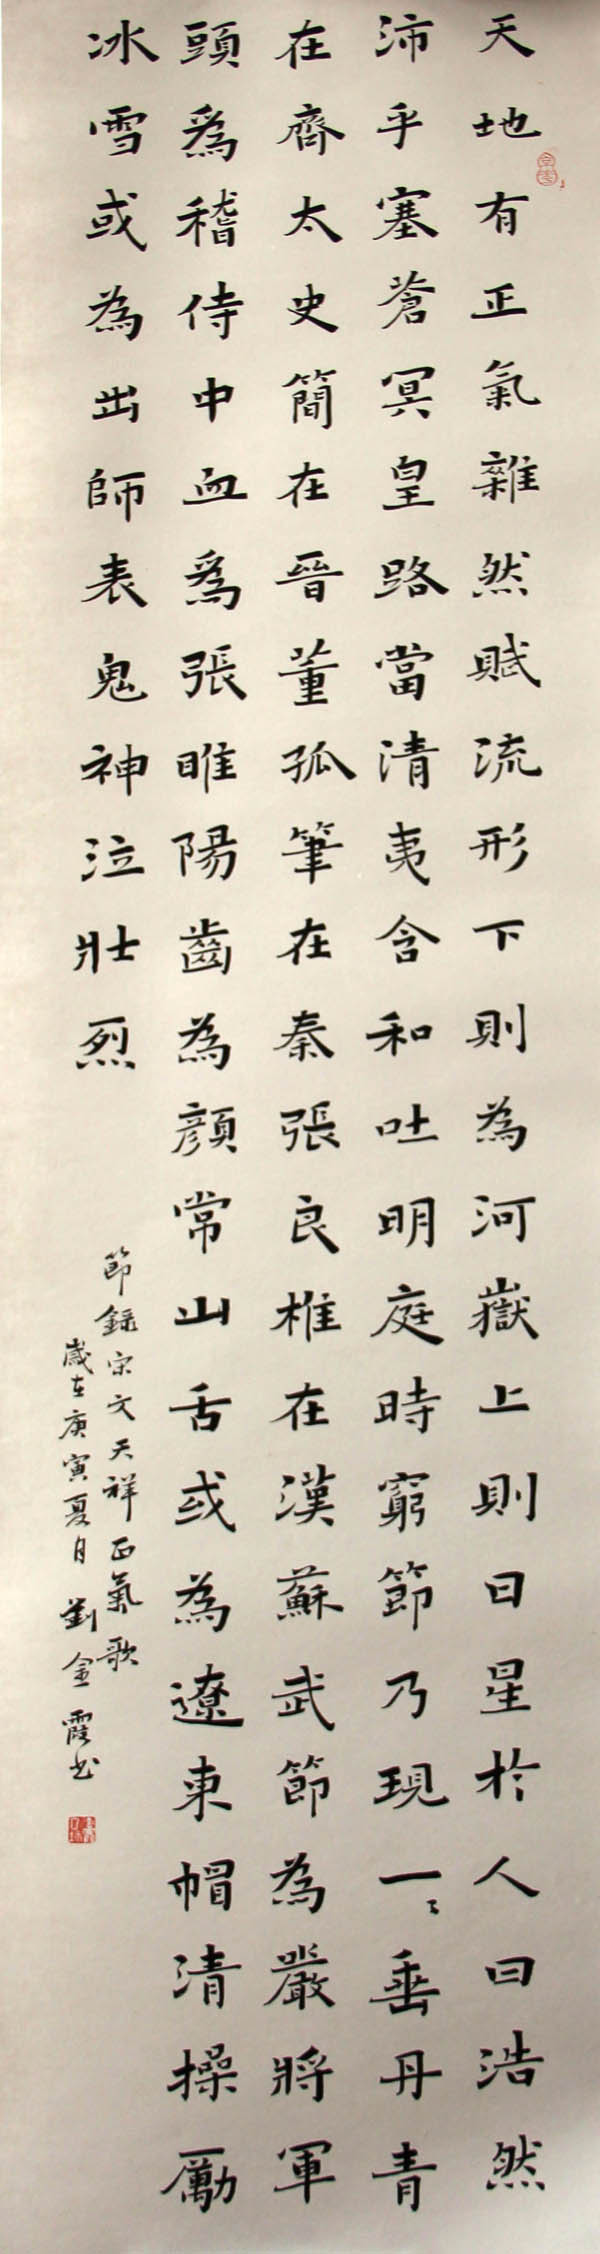 天地有正氣雜然賦流形下則為河嶽上則日星於人曰浩然
沛乎塞蒼冥皇路當清夷含和吐明庭時窮節乃現一々垂丹青
在齊太史簡在晉董孤筆在秦張良椎在漢蘇武節為嚴將軍
頭為稽侍中血為張睢陽齒為顏常山舌或為遼東帽清操厲
冰雪或為出師表鬼神泣壯烈
節錄宋文天祥正氣歌
歲在庚寅夏月劉金霞书